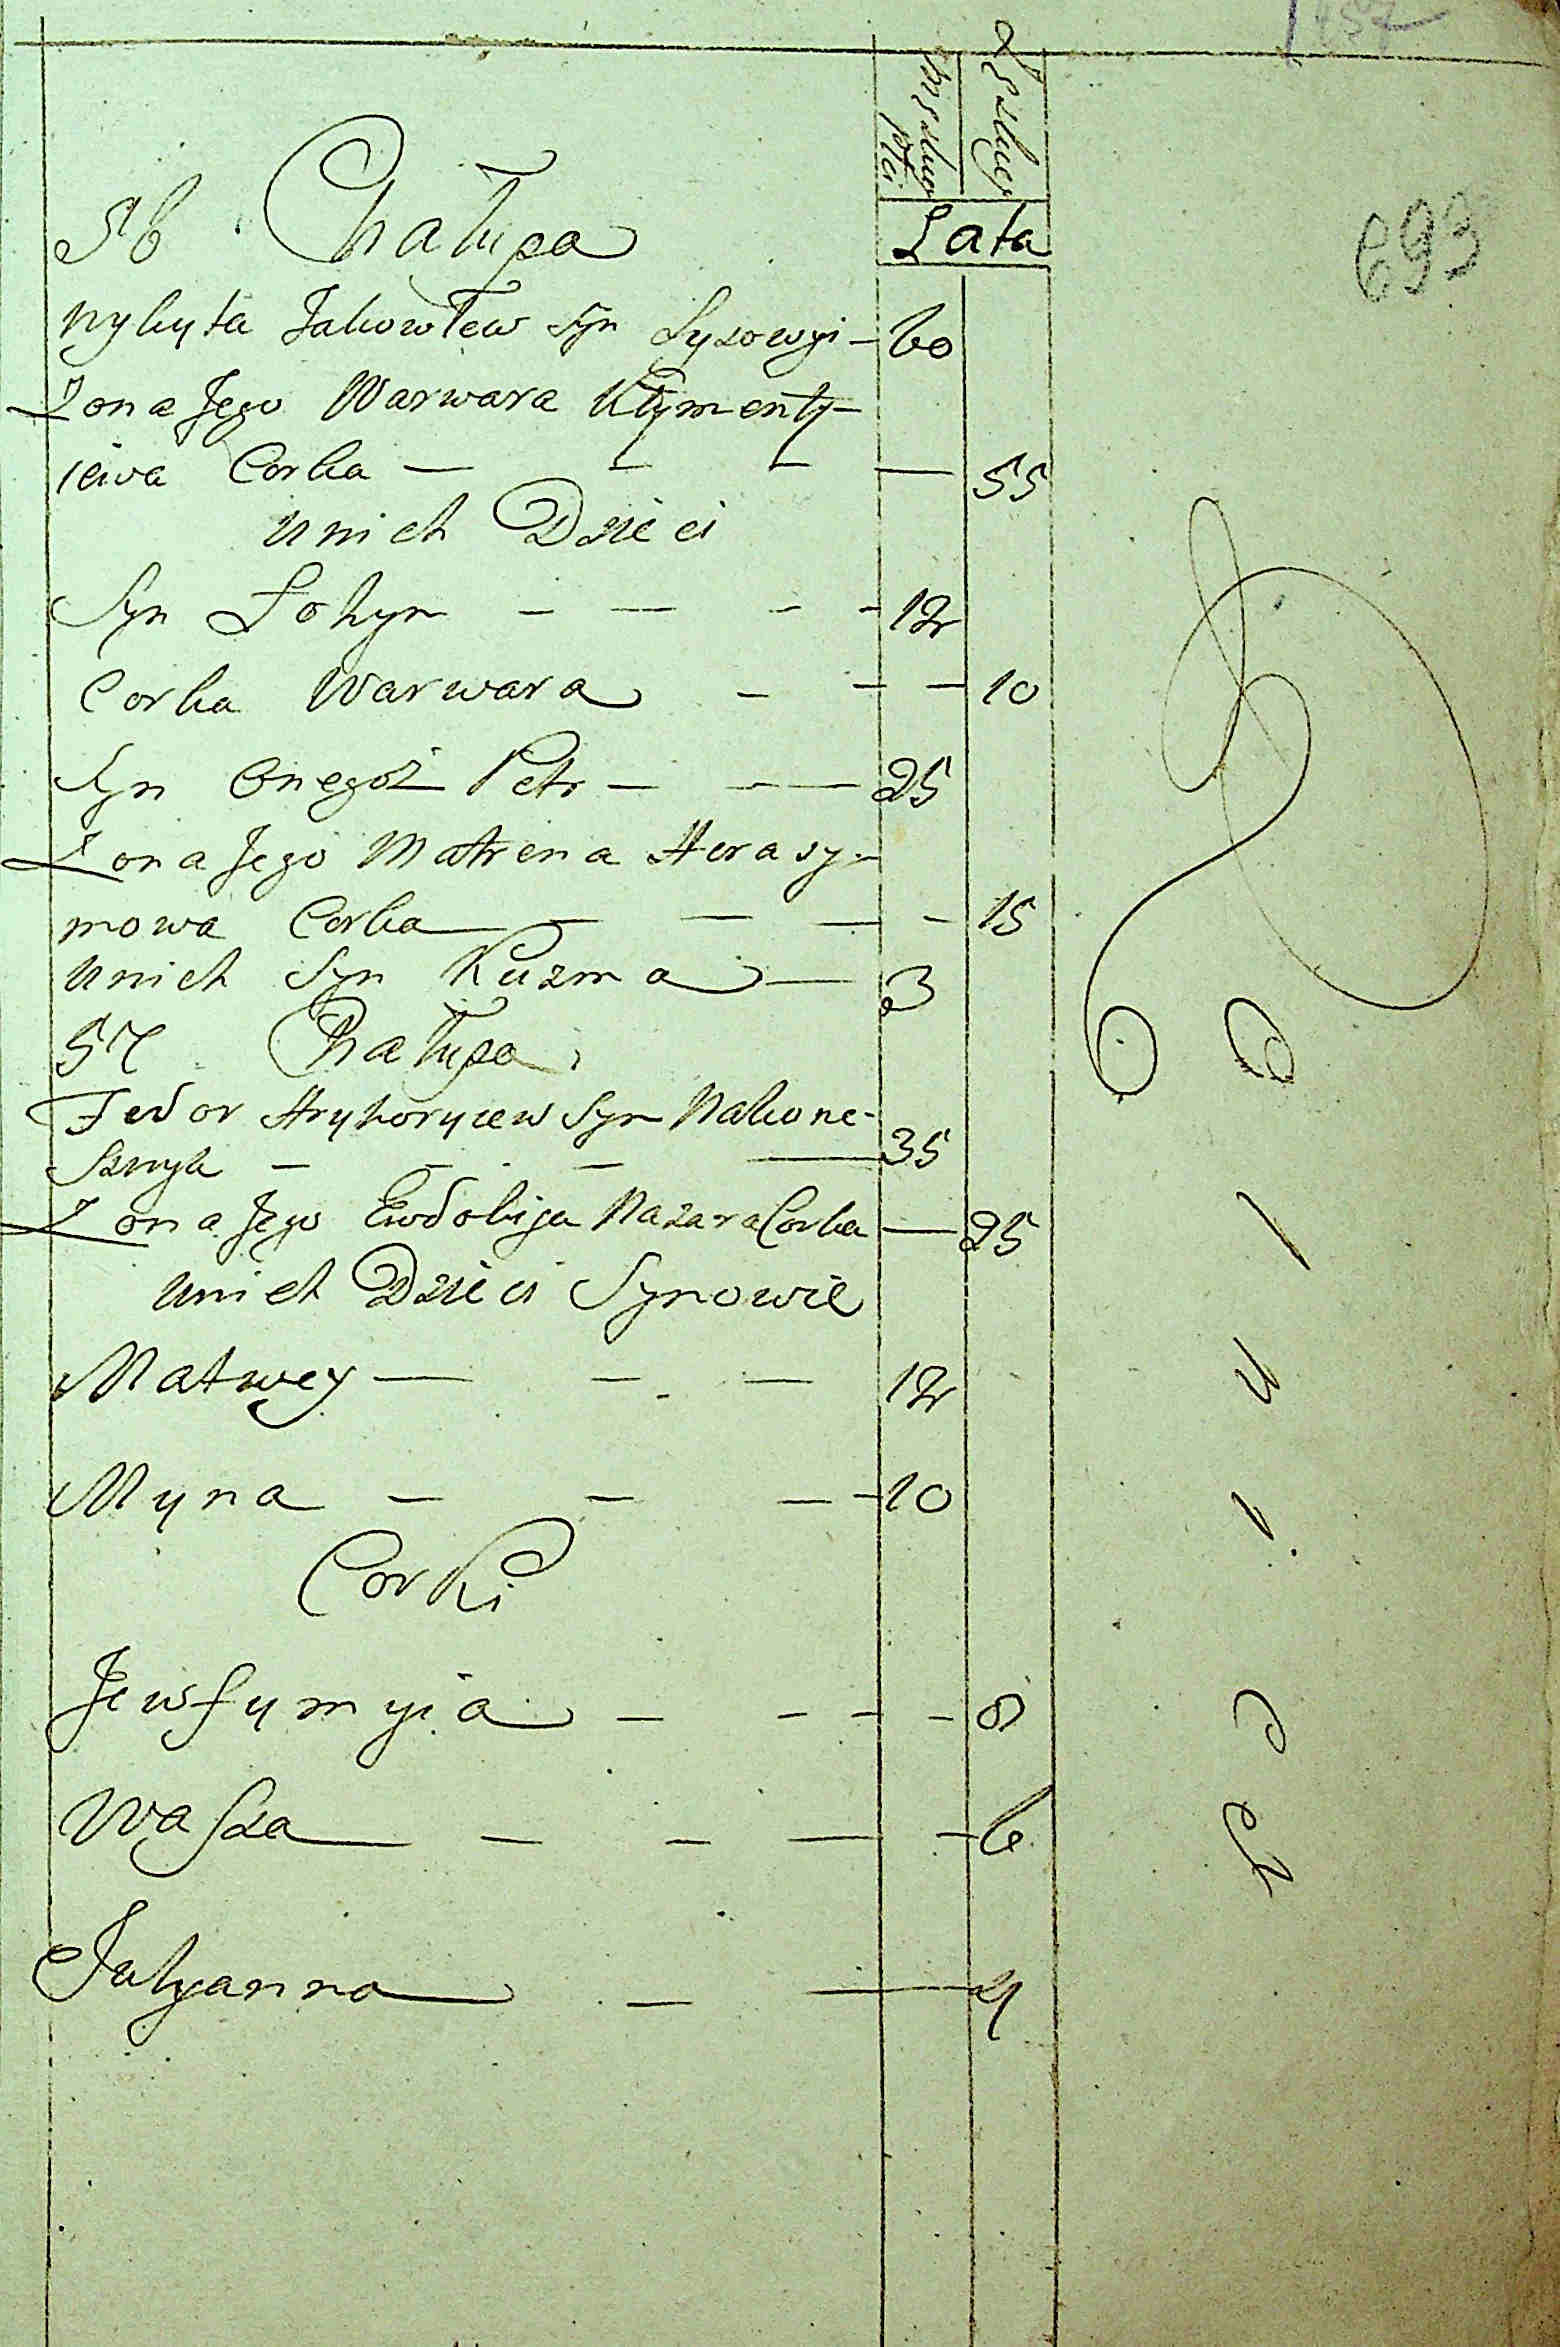 Męzkiey płci
Żeńskiey
56 Chałupa
Lata
Nykyta Jakowlew Syn Łysowyi - 60
Żona Jego Warwara Kłymenty-
iewa Corka - - - - 55
unich Dzieci
Syn Łohyn - - - - 12
Corka Warwara - - - 10
Syn Onegoż Petr - - - 25
Żona Jego Matrena Herasy-
mowa Corka - - - - 15
unich Syn Kuzma - 3
57 Chałupa
Fedor Hryhoryiew Syn Nakone-
sznyk - - - - 35
Żona Jego Ewdokija Nazara Corka - 25
unich Dzieci Synowie
Matwey - - - 12
Myna - - - - 10
Corki
Jewfymyia - - - - 8
Wassa - - - - 6
Julyanna - - 4
693